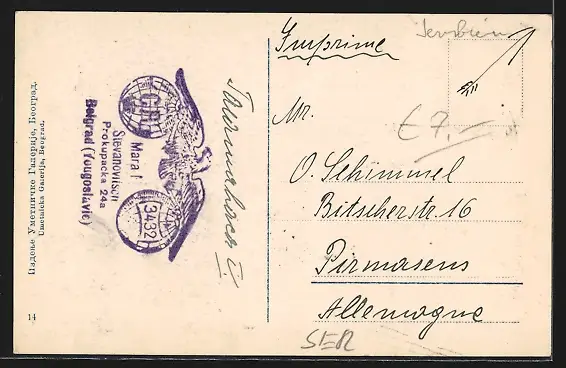 Издање Уметничке Галерије, Београд.
Umetnička Galerija, Beograd.
14
Mara I
Stevanowitsch
Prokupacka 24a
Belgrad (Yougoslavie)
3432
Imprime
€ 7,-
Mr.
O. Schimmel
Bitscherstr. 16
Pirmasens
Allemagne
SER